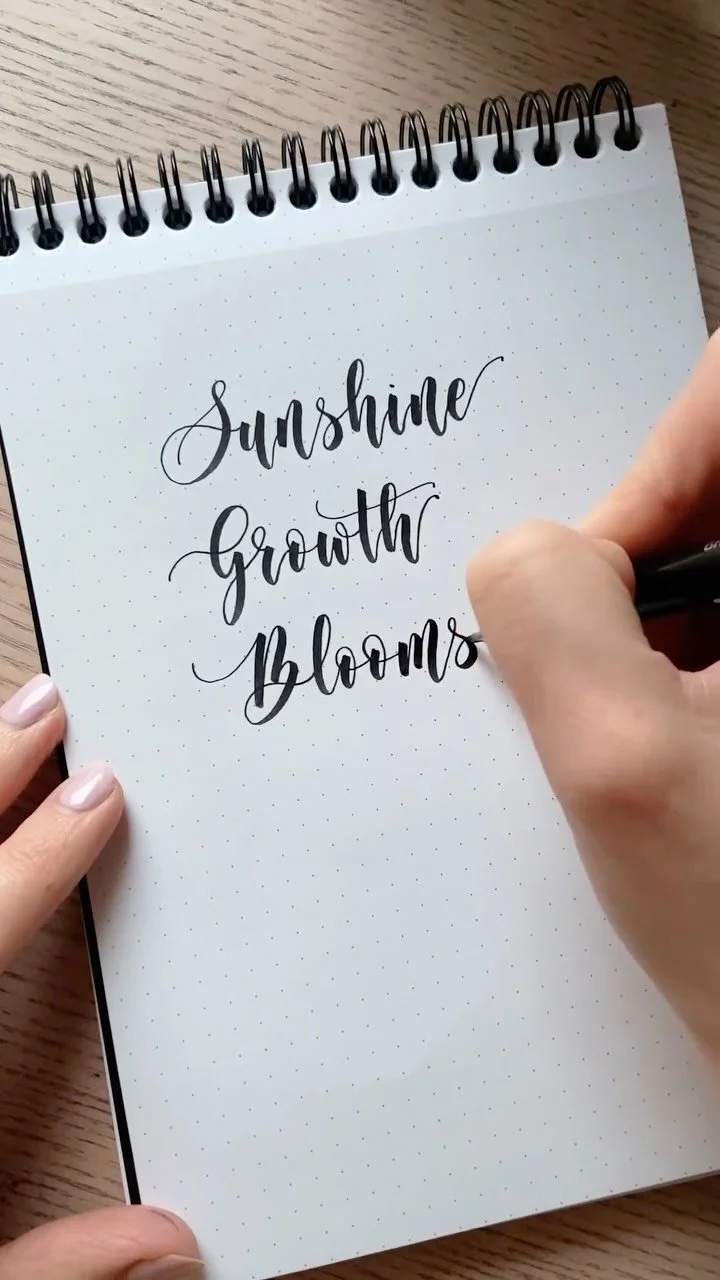 Sunshine
Growth
Blooms